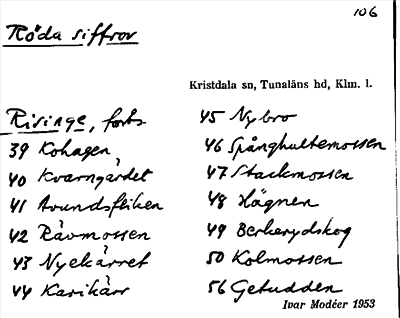 106
Röda siffror
Kristdala sn, Tunaläns hd, Klm. l.
Risinge, forts
39 Kohagen
40 Kvarngärdet
41 Avundsfliken
42 Rävmossen
43 Nyekärret
44 Karikärr
45 Nybro
46 Spånghultemossen
47 Stackmossen
48 Hägnen
49 Berkerydskog
50 Kolmossen
56 Getudden
Ivar Modéer 1953